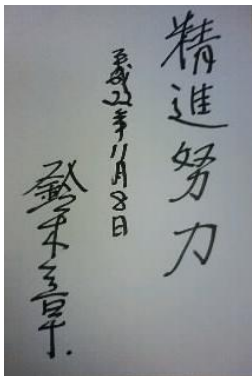 精進努力
平成22年11月8日
鈴木章.